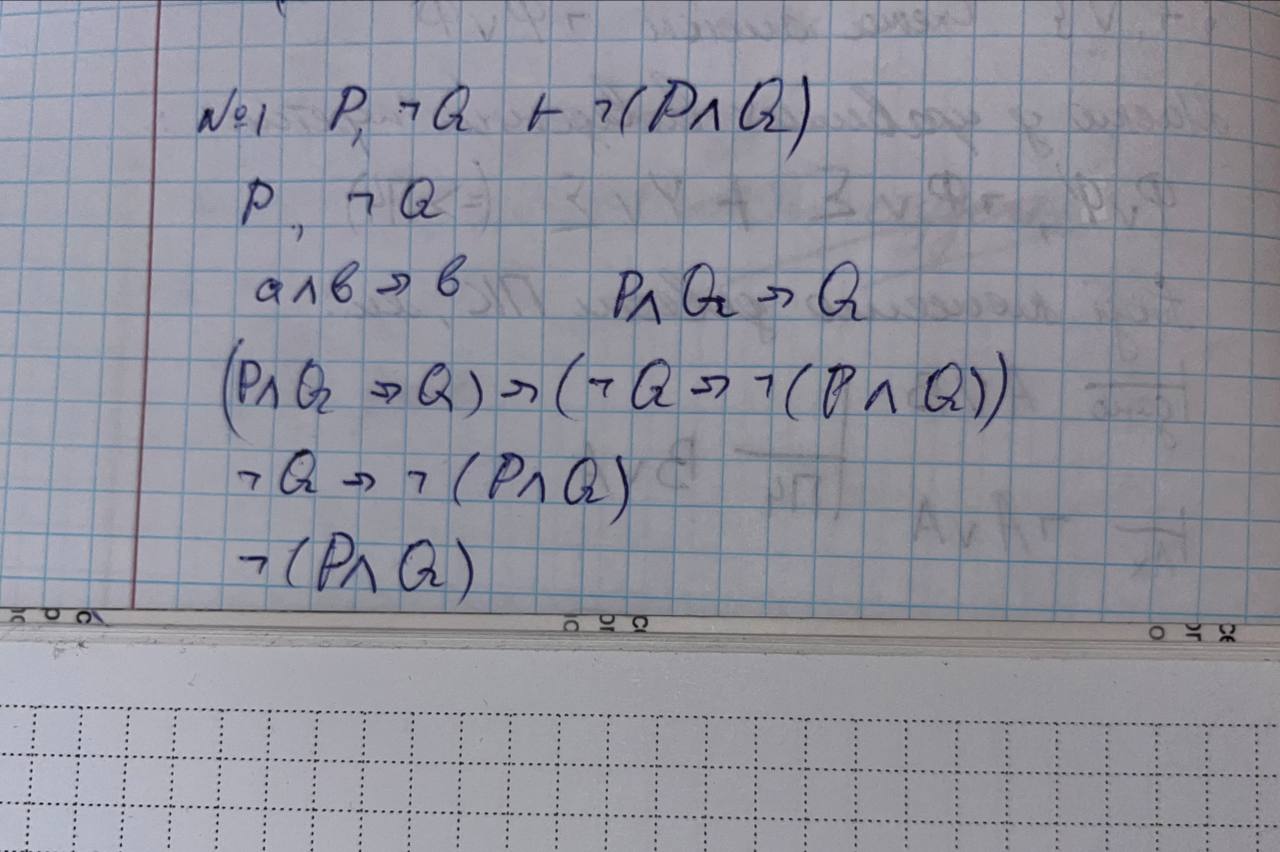 №1 P, ¬Q ⊢ ¬(P∧Q)
P, ¬Q
a∧b→b P∧Q→Q
(P∧Q→Q)→(¬Q→¬(P∧Q))
¬Q→¬(P∧Q)
¬(P∧Q)